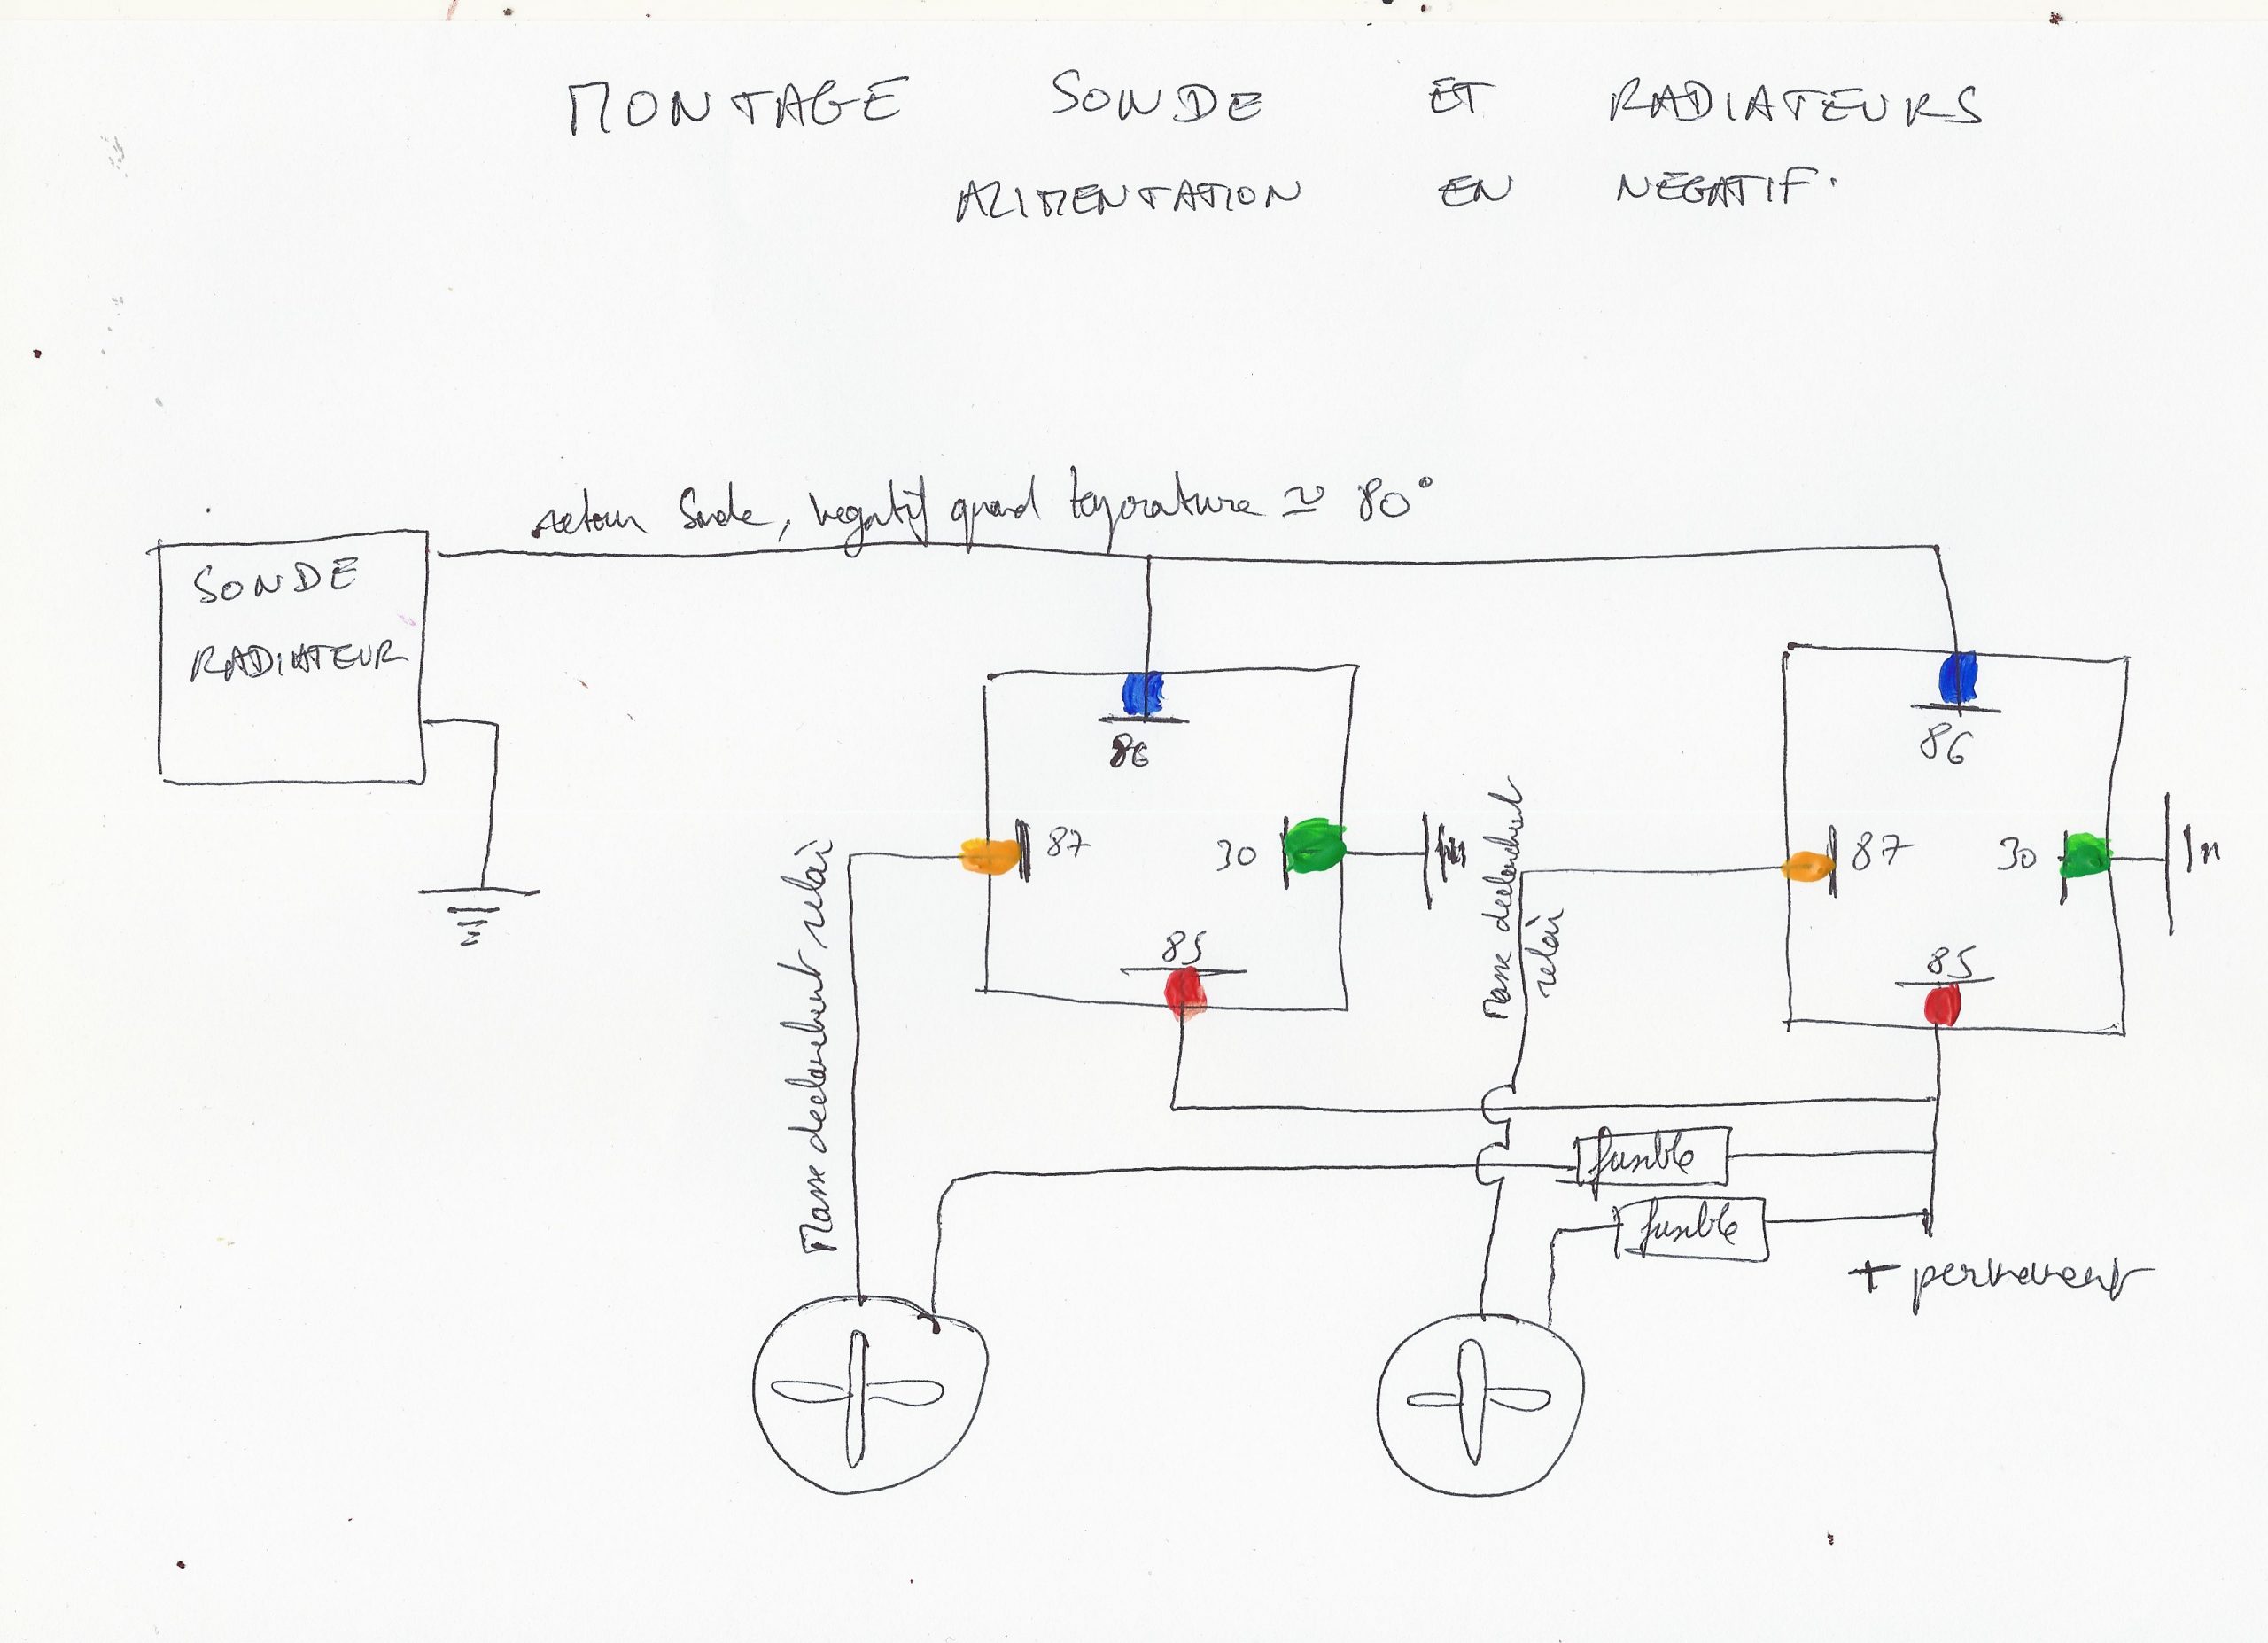 MONTAGE SONDE ET RADIATEURS
ALIMENTATION EN NEGATIF.
retour Sonde, negatif quand ≃ 80°
SONDE
RADIATEUR
86
87
30
85
Masse declenchent relai
86
87
30
85
Masse declenchent
relai
fusible
fusible
+ permanent